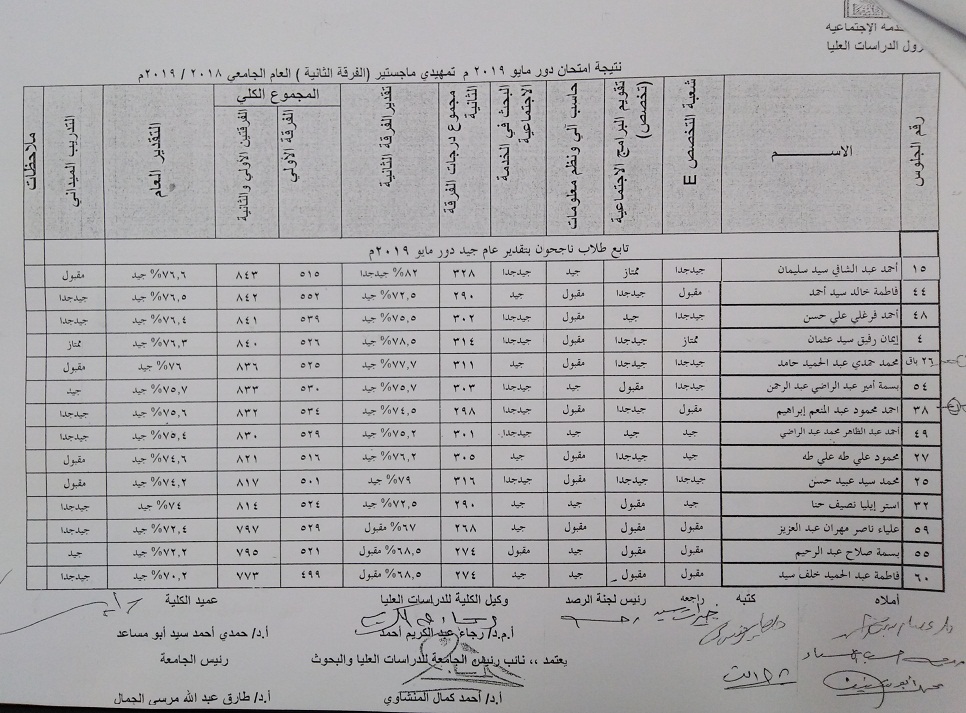 دمه الإجتماعيه
رول الدراسات العليا
نتيجة امتحان دور مايو ٢٠١٩ م تمهيدي ماجستير (الفرقة الثانية ) العام الجامعي ٢٠١٨ / ٢٠١٩م
رقم الجلوس الاســــــــم شعبة التخصص E تقويم البرامج الاجتماعية (تخصص) حاسب آلي ونظم معلومات البحث في الخدمة الاجتماعية مجموع درجات الفرقة الثانية تقدير الفرقة الثانية المجموع الكلي الفرقة الأولي الفرقتين الأولي والثانية التقدير العام التدريب الميداني ملاحظات
تابع طلاب ناجحون بتقدير عام جيد دور مايو ٢٠١٩م
١٥ أحمد عبد الشافي سيد سليمان جيدجدا ممتاز جيد جيدجدا ٣٢٨ ٨٢% جيدجدا ٥١٥ ٨٤٣ ٧٦,٦% جيد مقبول
٤٤ فاطمة خالد سيد أحمد مقبول جيدجدا مقبول جيد ٢٩٠ ٧٢,٥% جيد ٥٥٢ ٨٤٢ ٧٦,٥% جيد جيدجدا
٤٨ أحمد فرغلي علي حسن جيدجدا جيد مقبول جيدجدا ٣٠٢ ٧٥,٥% جيد ٥٣٩ ٨٤١ ٧٦,٤% جيد جيدجدا
٤ إيمان رفيق سيد عثمان ممتاز جيدجدا مقبول جيدجدا ٣١٤ ٧٨,٥% جيد ٥٢٦ ٨٤٠ ٧٦,٣% جيد ممتاز
٢٦ باق محمد حمدي عبد الحميد حامد جيدجدا جيدجدا مقبول جيد ٣١١ ٧٧,٧% جيد ٥٢٥ ٨٣٦ ٧٦% جيد مقبول
٥٤ بسمة أمير عبد الراضي عبد الرحمن جيدجدا مقبول جيد جيدجدا ٣٠٣ ٧٥,٧% جيد ٥٣٠ ٨٣٣ ٧٥,٧% جيد جيد
٣٨ احمد محمود عبد المنعم إبراهيم مقبول جيدجدا مقبول جيدجدا ٢٩٨ ٧٤,٥% جيد ٥٣٤ ٨٣٢ ٧٥,٦% جيد جيدجدا
٤٩ أحمد عبد الظاهر محمد عبد الراضي جيد جيد جيد جيدجدا ٣٠١ ٧٥,٢% جيد ٥٢٩ ٨٣٠ ٧٥,٤% جيد جيدجدا
٢٧ محمود علي طه علي طه جيد جيدجدا مقبول جيد ٣٠٥ ٧٦,٢% جيد ٥١٦ ٨٢١ ٧٤,٦% جيد مقبول
٢٥ محمد سيد عبيد حسن جيد جيدجدا مقبول جيدجدا ٣١٦ ٧٩% جيد ٥٠١ ٨١٧ ٧٤,٢% جيد مقبول
٣٢ استر إيليا نصيف حنا جيد مقبول جيد جيد ٢٩٠ ٧٢,٥% جيد ٥٢٤ ٨١٤ ٧٤% جيد جيدجدا
٥٩ علياء ناصر مهران عبد العزيز مقبول مقبول مقبول جيد ٢٦٨ ٦٧% مقبول ٥٢٩ ٧٩٧ ٧٢,٤% جيد جيدجدا
٥٥ بسمة صلاح عبد الرحيم مقبول مقبول جيد مقبول ٢٧٤ ٦٨,٥% مقبول ٥٢١ ٧٩٥ ٧٢,٢% جيد جيد
٦٠ فاطمة عبد الحميد خلف سيد مقبول مقبول جيد جيد ٢٧٤ ٦٨,٥% مقبول ٤٩٩ ٧٧٣ ٧٠,٢% جيد جيدجدا
أملاه كتبه راجعه رئيس لجنة الرصد وكيل الكلية للدراسات العليا عميد الكلية
أ.م.د/ رجاء عبد الكريم أحمد أ.د/ حمدي أحمد سيد أبو مساعد
يعتمد ،، نائب رئيس الجامعة للدراسات العليا والبحوث رئيس الجامعة
أ.د/ أحمد كمال المنشاوي أ.د/ طارق عبد الله مرسى الجمال